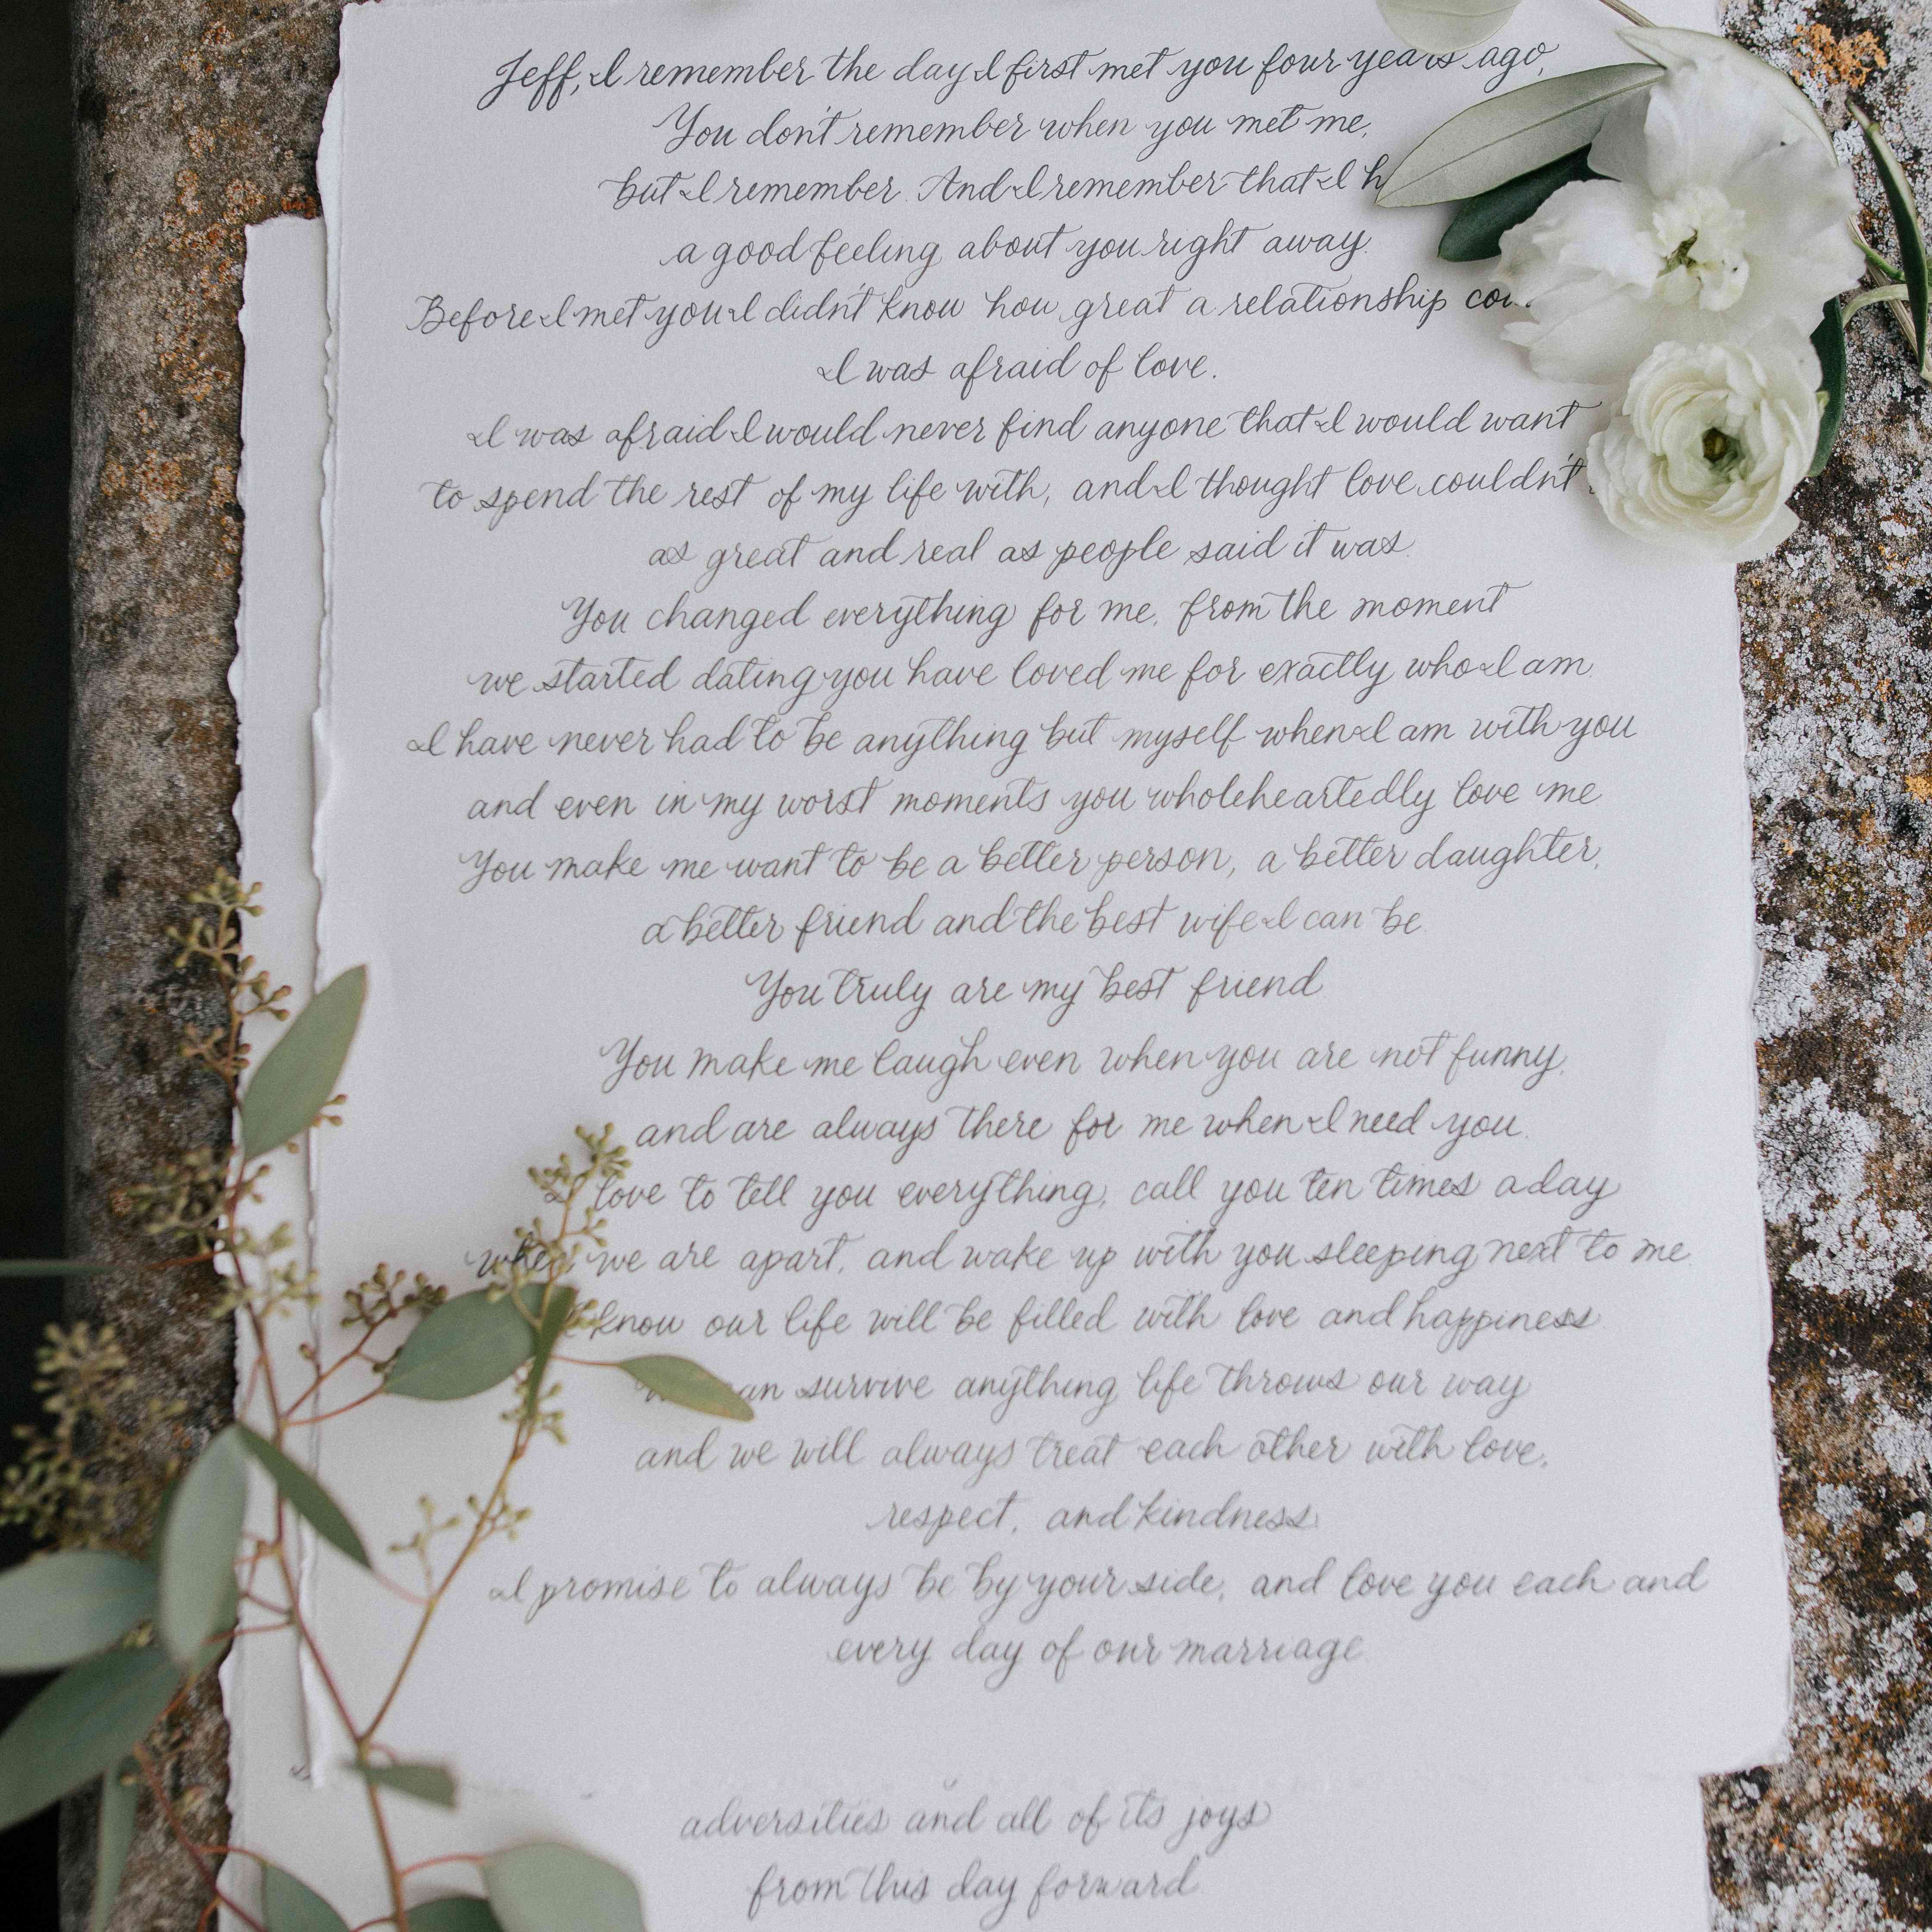 Jeff, I remember the day I first met you four years ago,
You don't remember when you met me,
but I remember. And I remember that I
a good feeling about you right away.
Before I met you I didn't know how great a relationship
I was afraid of love.
I was afraid I would never find anyone that I would want
to spend the rest of my life with, and I thought love couldn't
as great and real as people said it was.
You changed everything for me, from the moment
we started dating you have loved me for exactly who I am.
I have never had to be anything but myself when I am with you
and even in my worst moments you wholeheartedly love me
You make me want to be a better person, a better daughter,
a better friend and the best wife I can be
You truly are my best friend
You make me laugh even when you are not funny,
and are always there for me when I need you.
I love to tell you everything, call you ten times a day
when we are apart, and wake up with you sleeping next to me
know our life will be filled with love and happiness
survive anything life throws our way
and we will always treat each other with love,
respect, and kindness
I promise to always be by your side, and love you each and
every day of our marriage
adversities and all of its joys
from this day forward